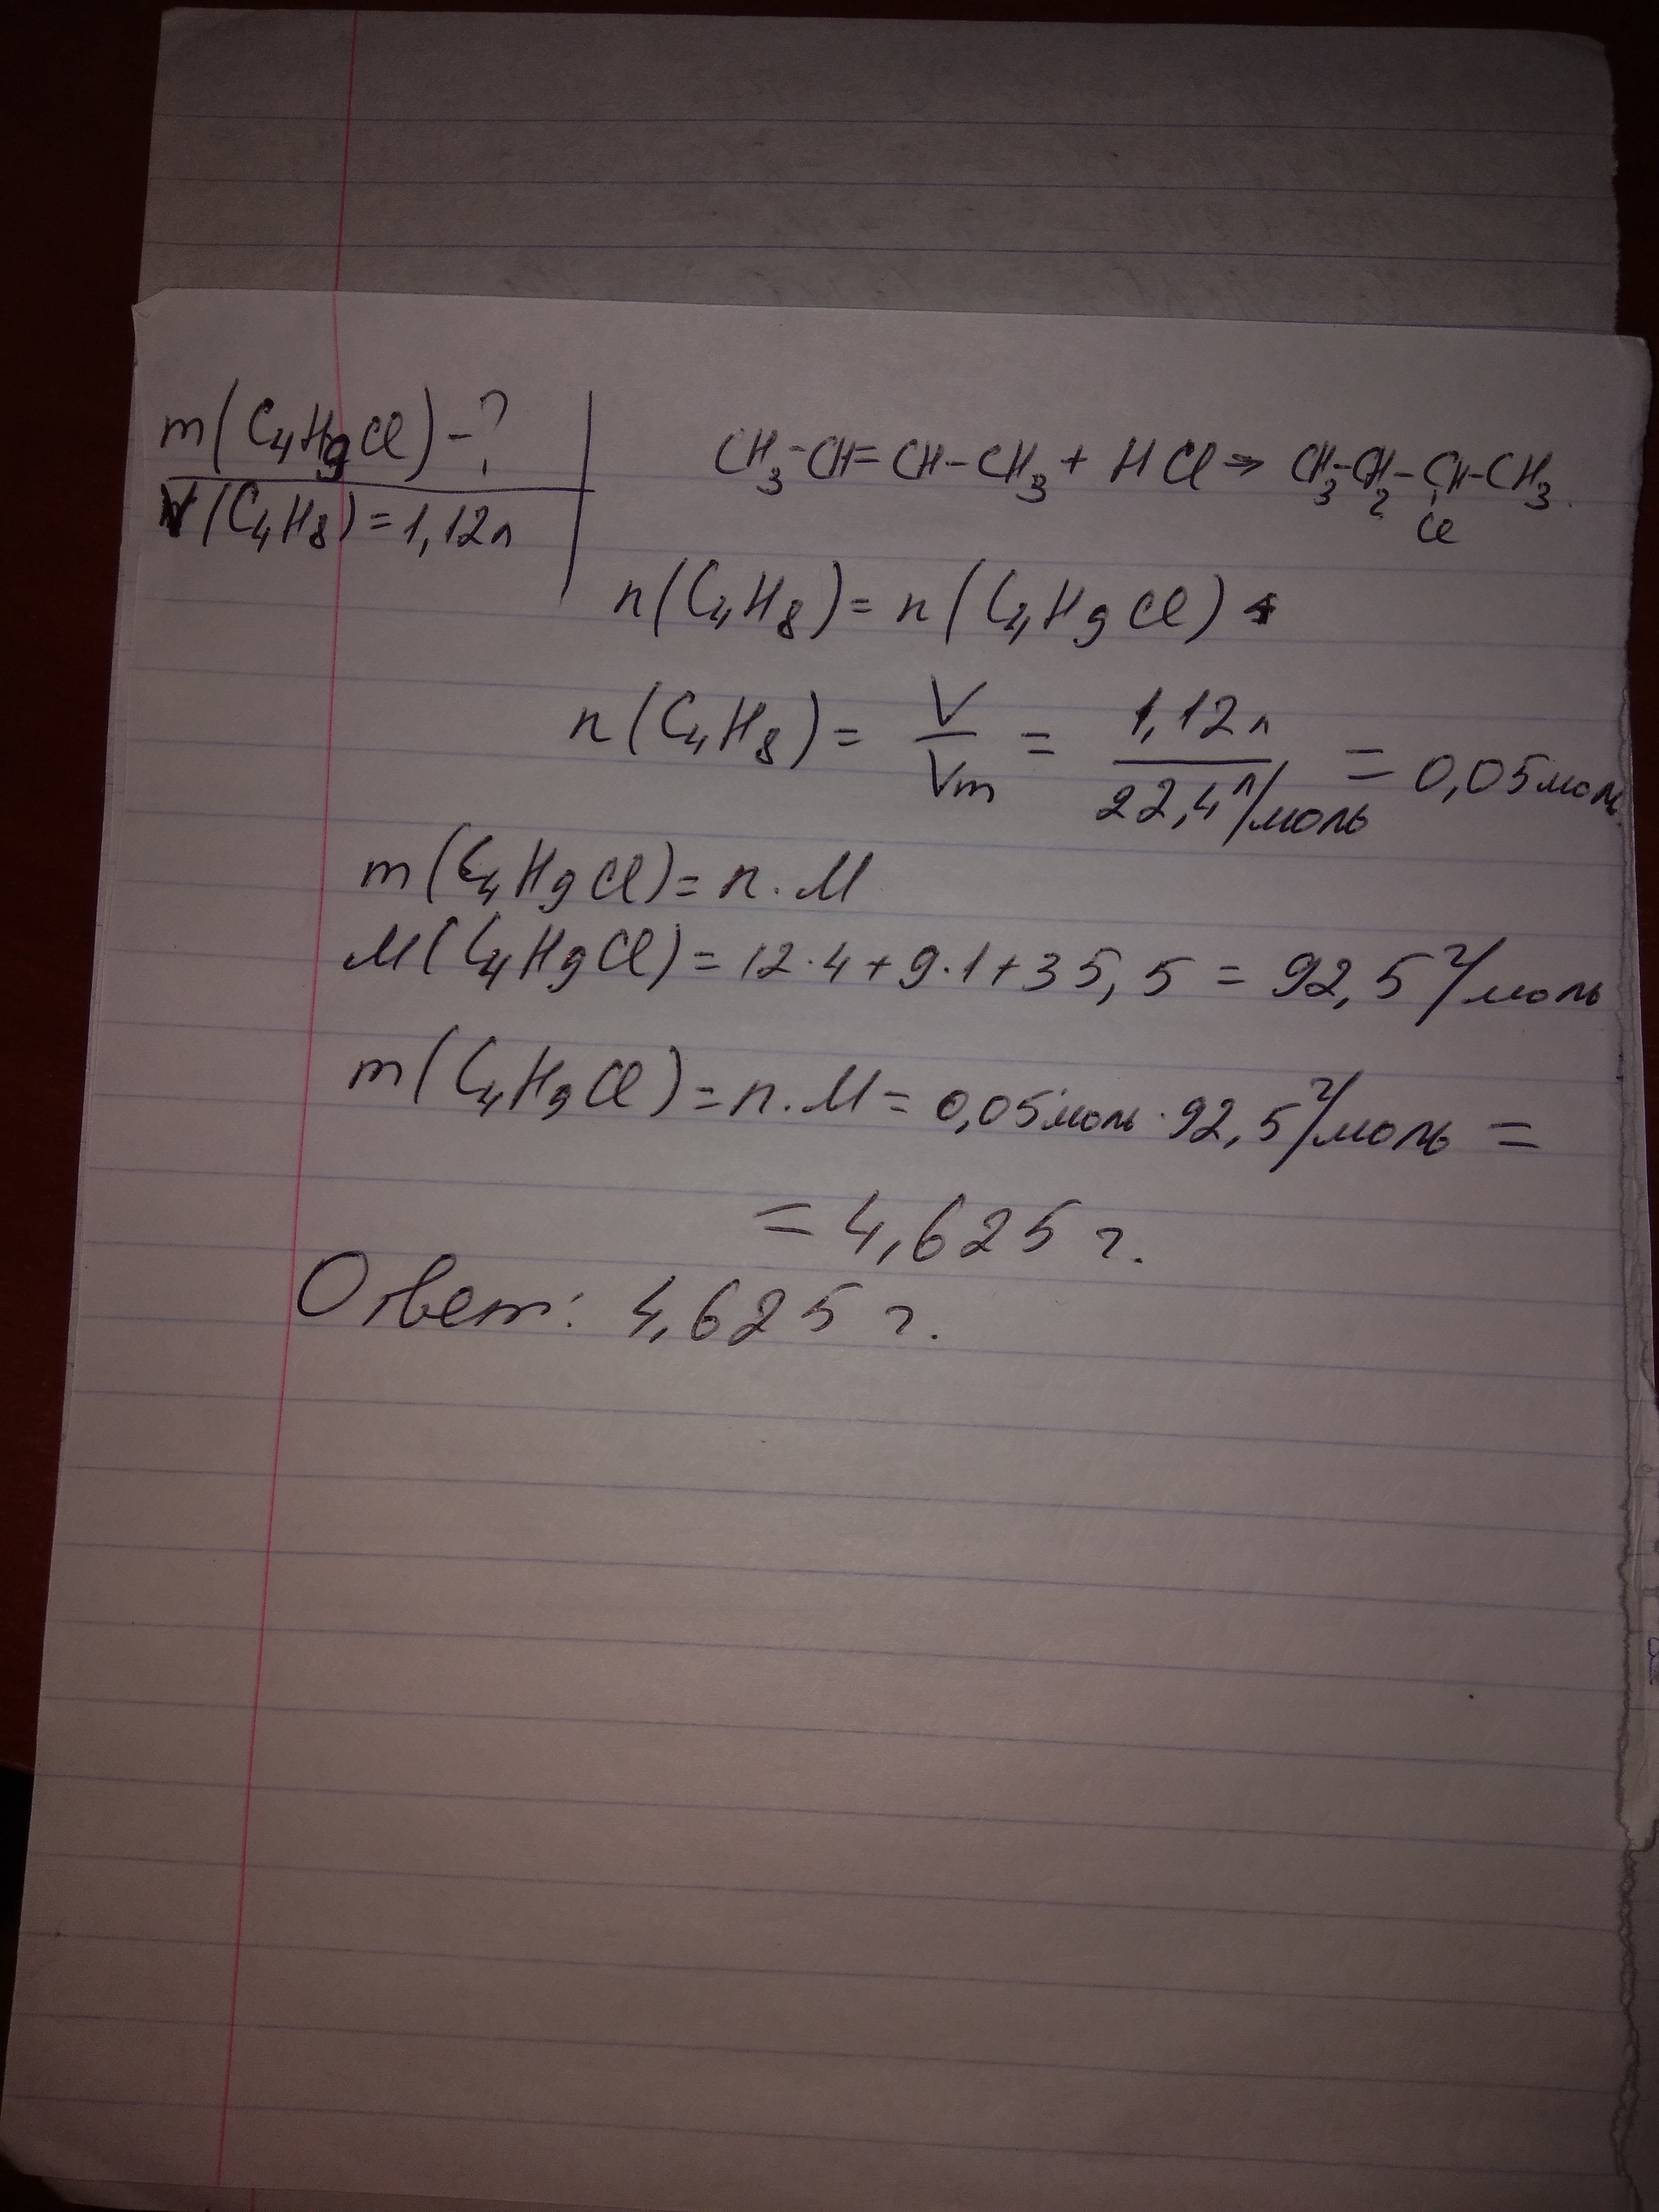 m(C₄H₉Cl)-?
V(C₄H₈)=1,12л
CH₃-CH=CH-CH₃+HCl→CH₃-CH₂-CH-CH₃
Cl
n(C₄H₈)=n(C₄H₉Cl)
n(C₄H₈)= V/Vm = 1,12л/22,4л/моль =0,05моль
m(C₄H₉Cl)=n·M
M(C₄H₉Cl)=12·4+9·1+35,5=92,5г/моль
m(C₄H₉Cl)=n·M=0,05моль·92,5г/моль=
=4,625г.
Ответ: 4,625г.